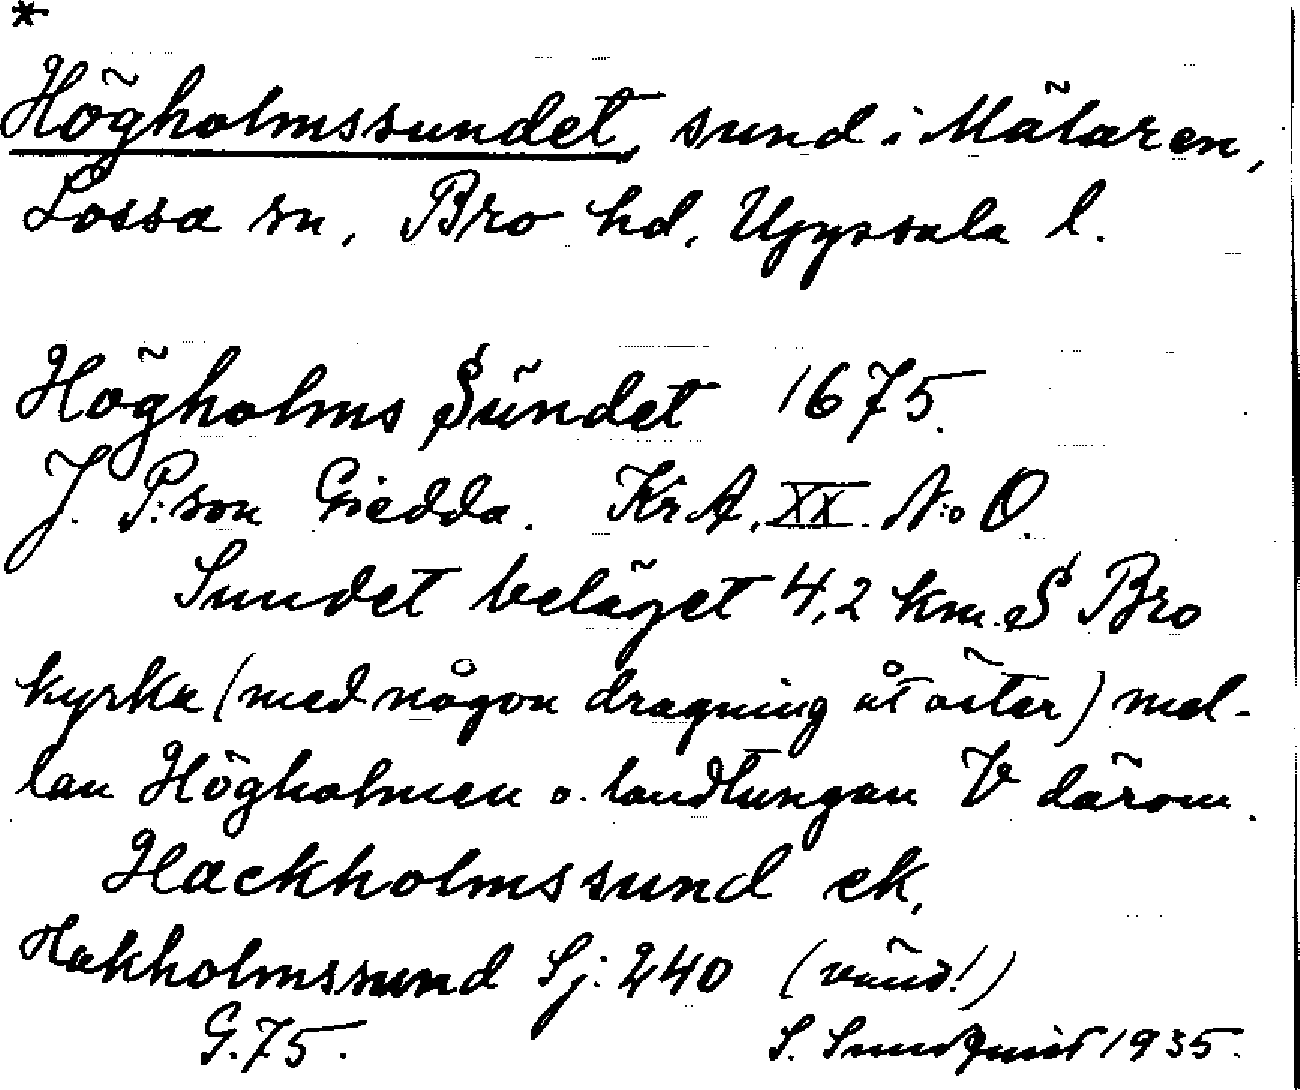 *
Högholmssundet, sund i Mälaren,
Lossa sn, Bro hd, Uppsala l.
Högholms Sundet 1675.
J. P:son Giedda. KrA, XX. N:o O.
Sundet beläget 4,2 km. S Bro
kyrka (med någon dragning åt öster) mel-
lan Högholmen o. landtungan V därom.
Hackholmssund ek,
Hakholmssund Sj: 240 (vänd!)
G. 75.
S. Sundquist 1935.